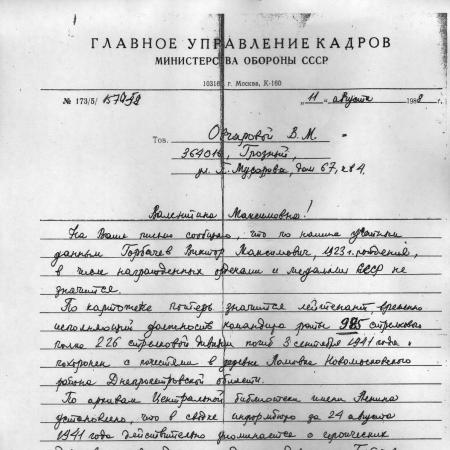 ГЛАВНОЕ УПРАВЛЕНИЕ КАДРОВ
МИНИСТЕРСТВА ОБОРОНЫ СССР
103160 г. Москва, К-160
№ 173/5/
„11 „ августа 1988 г.
Тов. Овчаровой В. М
364016, Грозный,
ул. П. Мусорова, дом 67, кв 4.
Валентина Максимовна!
На Ваше письмо сообщаю, что по нашим учетным
данным Горбачев Виктор Максимович, 1923 г. рождения,
в числе награжденных орденами и медалями СССР не
значится.
По картотеке потерь значится лейтенант, временно
исполняющий должность командира роты 985 стрелкового
полка 226 стрелковой дивизии погиб 3 сентября 1941 года.
похоронен с почестями в деревне Ломовка Новомосковского
района Днепропетровской области.
По архивам Центральной библиотеки имени Ленина
установлено, что в сводке информбюро за 24 августа
1941 года действительно упоминается о героических